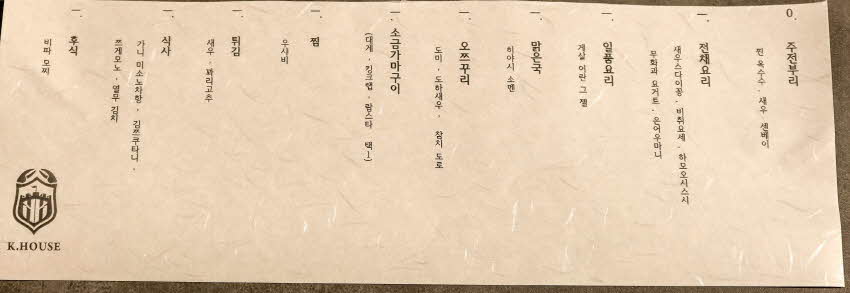 0. 주전부리
찐 옥수수 · 새우 센베이
一. 전채요리
새우스다이꽁 · 비취요세 · 하모오시스시
무화과 요거트 · 은어우마니
一. 일품요리
게살 이란 그 젤
一. 맑은국
히야시 소멘
一. 오쯔꾸리
도미 · 도하새우 · 참치 도로
一. 소금가마구이
(대게 · 킹크랩 · 랍스타 택一)
一. 찜
우사비
一. 튀김
새우 · 꽈리고추
一. 식사
가니 미소노차항 · 김쯔쿠타니 ·
쯔게모노 · 열무 김치
一. 후식
비파 모찌
K.HOUSE